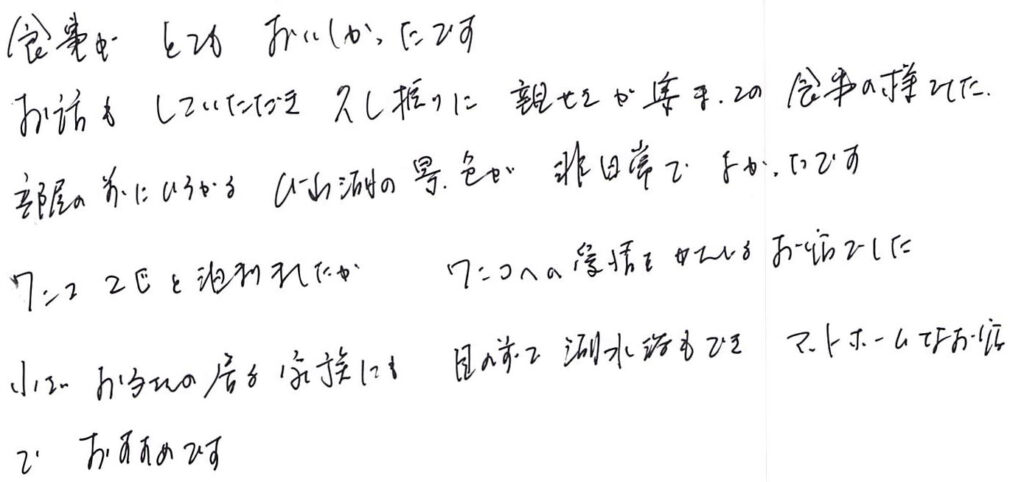 食事が とても おいしかったです
お話も していただき 久し振りに 親せきが集まっての 食事の様でした.
部屋の前にひろがる びわ湖の景色が 非日常で よかったです
ワンコ 2匹と泊りましたが ワンコへの愛情を かんじる お宿でした
小さい お子さんの居る家族にも 目の前で 湖水浴もでき アットホームなお宿
で おすすめです